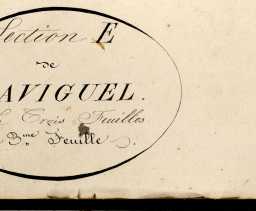 Section E
de
AVIGUEL.
Trois Feuilles
3.me Feuille